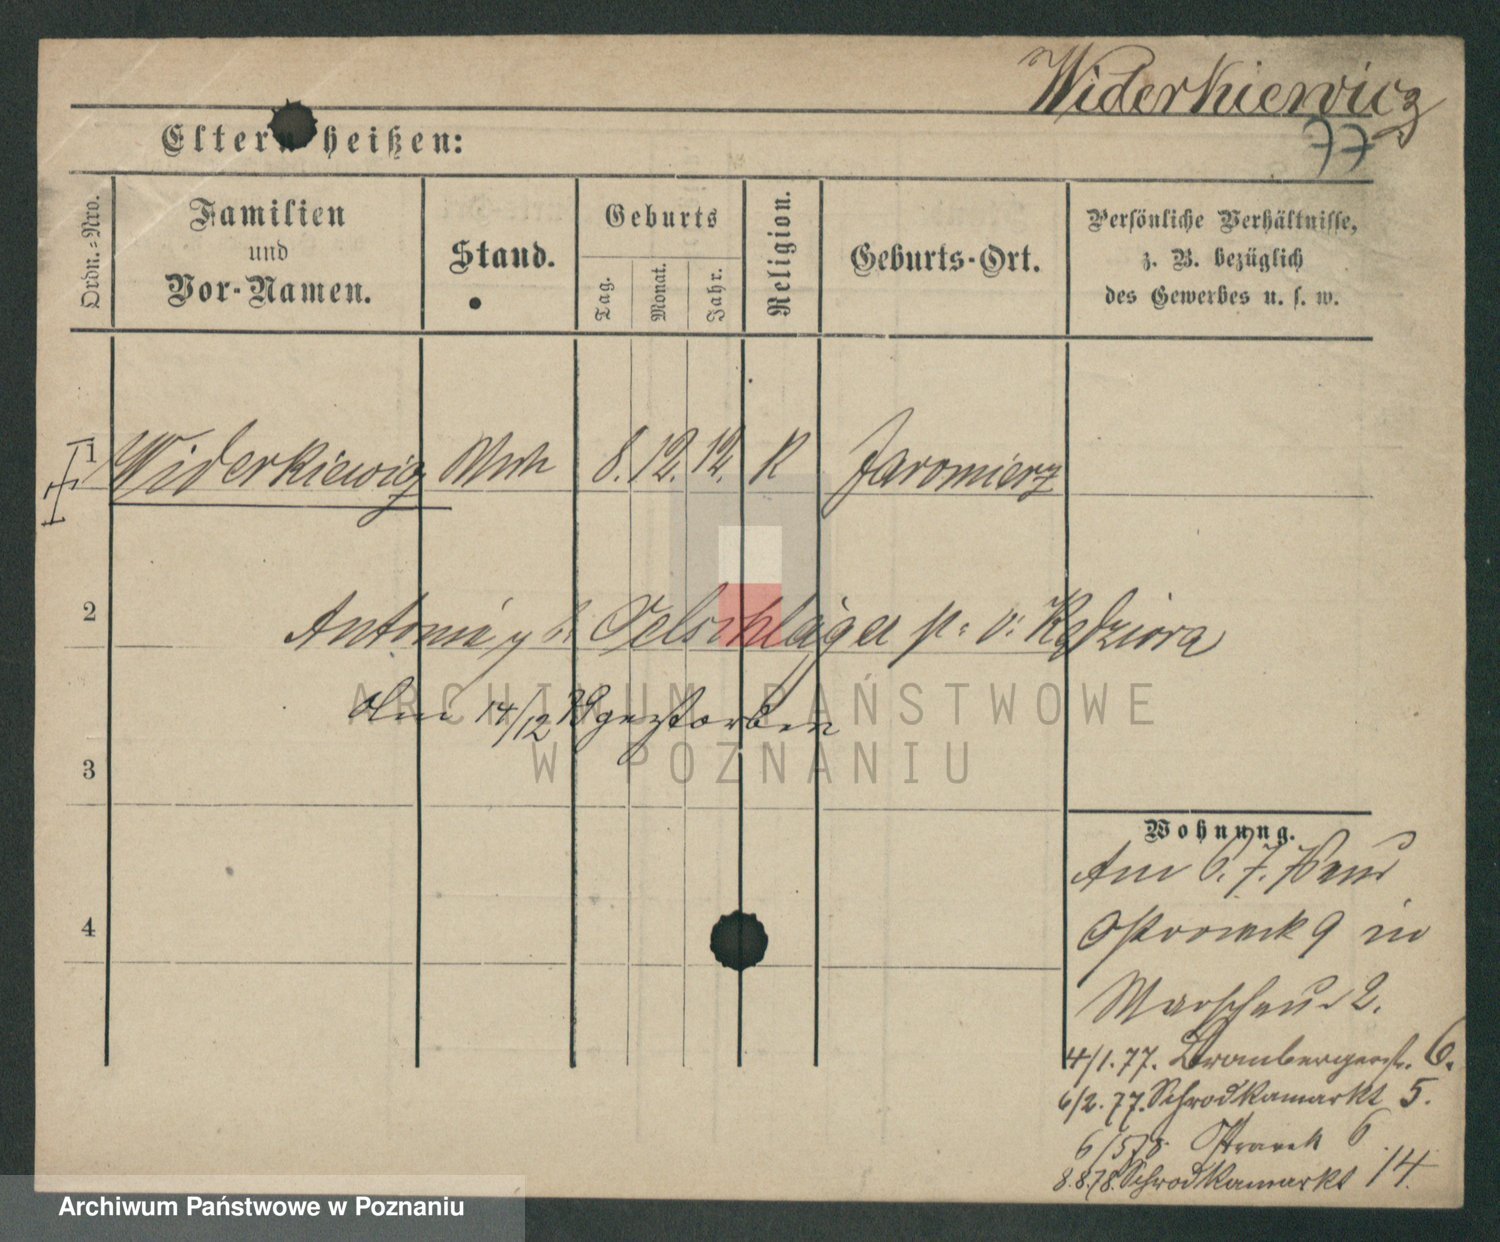 Widerkiewicz
77
Eltern heißen:
Ordn.=Nro.
Familien
und
Vor-Namen.
Stand.
Geburts
Tag.
Monat.
Jahr.
Religion.
Geburts-Ort.
Persönliche Verhältnisse,
z. B. bezüglich
des Gewerbes u. s. w.
1 Widerkiewicz 8. 12. 12. K Jaromierz
2 Antonia Oelschläger Kędziora
am 14/12 78 gestorben
3
Wohnung.
Am 6. 7.
9 in
Warschau 2.
4/1. 77. Brombergerstr. 6.
6/2. 77. Schrodkamarkt 5.
6/5 78. 6
8.8.78. Schrodkamarkt 14.
4
ARCHIWUM PAŃSTWOWE
W POZNANIU
Archiwum Państwowe w Poznaniu